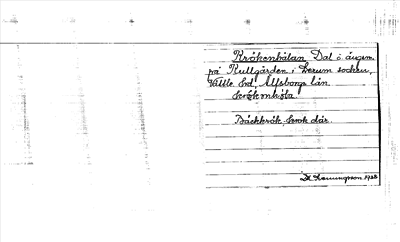 Krökenhålan Dal o ängsm.
på Kullgården i Lerum socken,
Vättle hd, Älfsborgs län.
krøkənhåla.
Bäckkrök, krok där.
D. Hemmingsson 1928